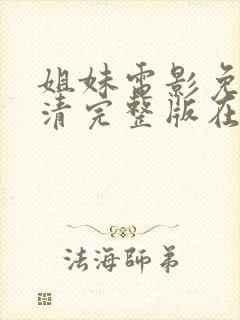 姐妹雷影免
清完整版在
法海師弟